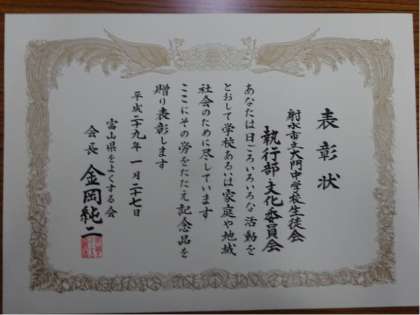 表彰状
射水市立大門中学校生徒会
執行部 文化委員会
あなたは日ごろいろいろな活動を
とおして学校あるいは家庭や地域
社会のために尽しています
ここにその労をたたえ記念品を
贈り表彰します
平成二十九年一月二十七日
富山県をよくする会
会長 金岡純二